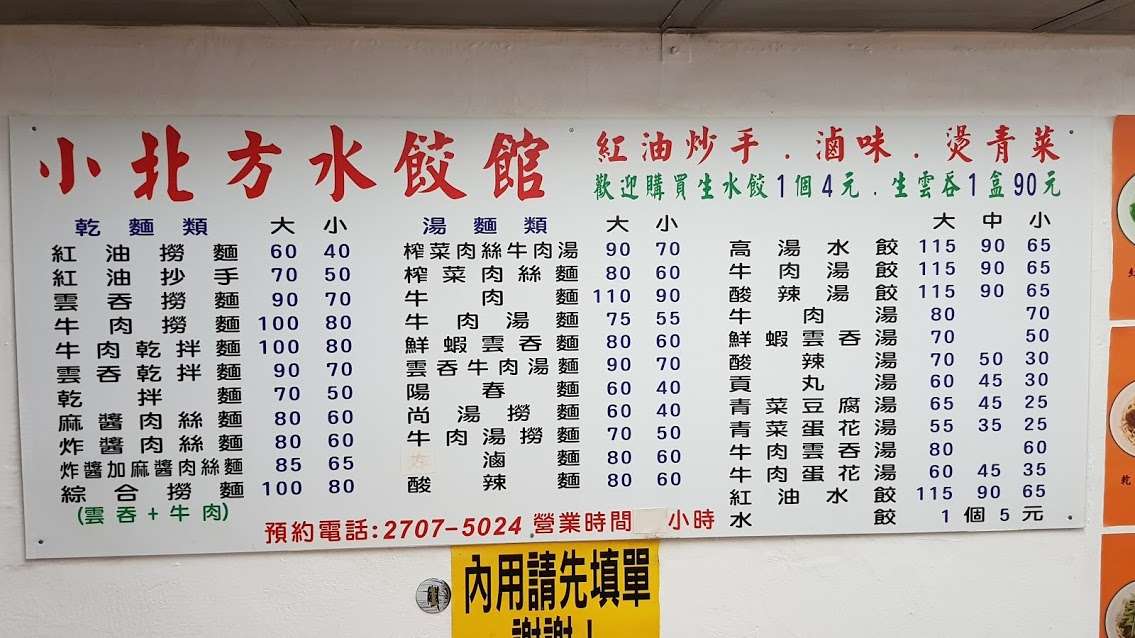 小北方水餃館
紅油炒手．滷味．燙青菜
歡迎購買生水餃1個4元．生雲吞1盒90元
乾麵類 大 小
紅油撈麵 60 40
紅油抄手 70 50
雲吞撈麵 90 70
牛肉撈麵 100 80
牛肉乾拌麵 100 80
雲吞乾拌麵 90 70
乾拌麵 70 50
麻醬肉絲麵 80 60
炸醬肉絲麵 80 60
炸醬加麻醬肉絲麵 85 65
綜合撈麵 100 80
(雲吞+牛肉)
湯麵類 大 小
榨菜肉絲牛肉湯 90 70
榨菜肉絲麵 80 60
牛肉麵 110 90
牛肉湯麵 75 55
鮮蝦雲吞麵 80 60
雲吞牛肉湯麵 90 70
陽春麵 60 40
尚湯撈麵 60 40
牛肉湯撈麵 70 50
滷麵 80 60
酸辣麵 80 60
大 中 小
高湯水餃 115 90 65
牛肉湯餃 115 90 65
酸辣湯餃 115 90 65
牛肉湯 80 70
鮮蝦雲吞湯 70 50
酸辣湯 70 50 30
貢丸湯 60 45 30
青菜豆腐湯 65 45 25
青菜蛋花湯 55 35 25
牛肉雲吞湯 80 60
牛肉蛋花湯 60 45 35
紅油水餃 115 90 65
水餃 1個5元
預約電話:2707-5024 營業時間 小時
內用請先填單
謝謝！